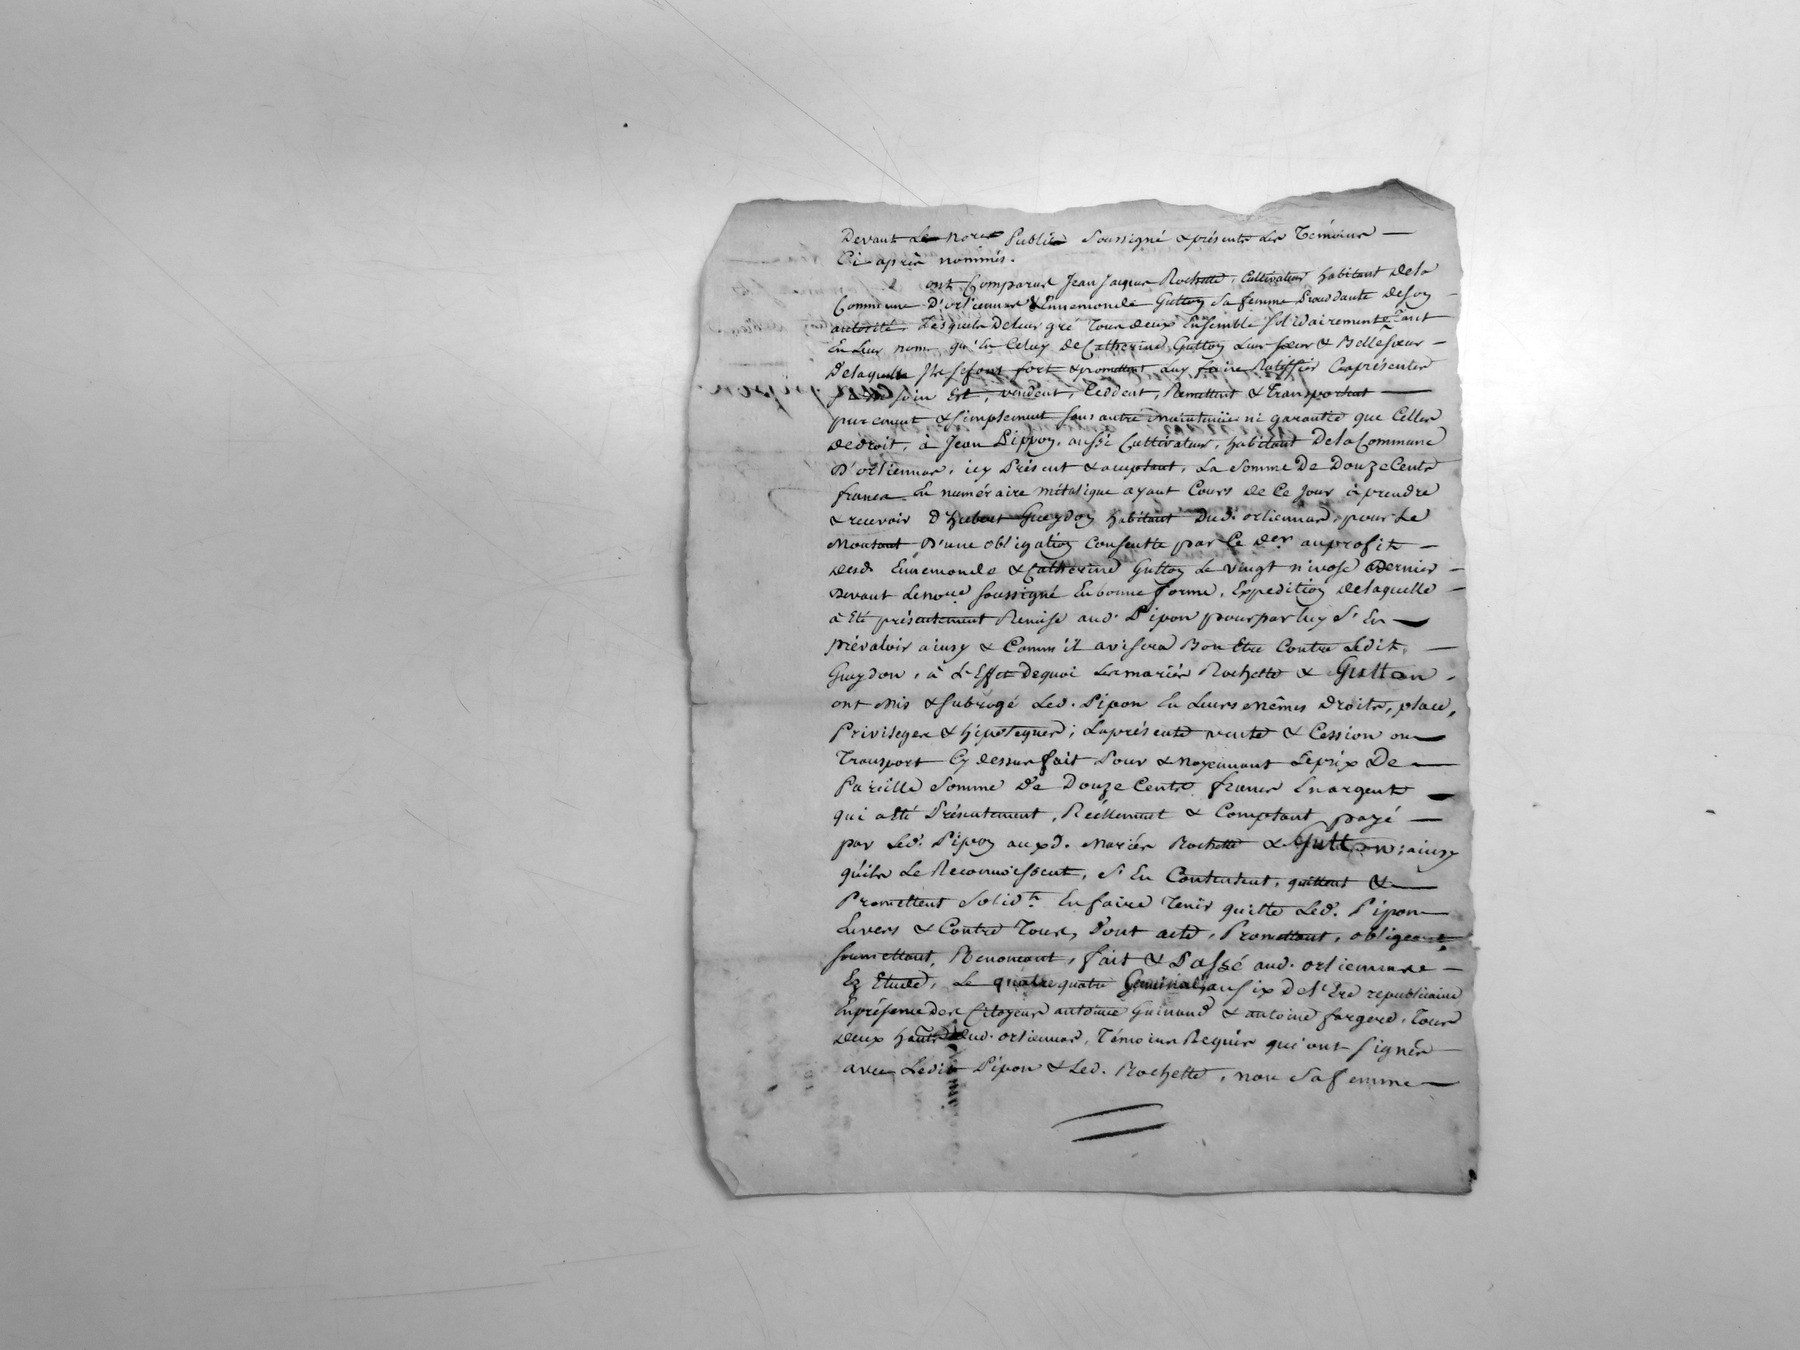 Devant le nore Public soussigné & présents les Témoins
Ci après nommés.
ont Comparus Jean Jacques Rochette, Cultivateur habitant de la
Commune d'orliennas & Ennemonde Gutton sa femme Procédante de son
autorité, Lesquels de leur gré Tous deux Ensemble solidairement Tant
En leur nom qu'En Celuy de Catherine Gutton leur sœur & Belle sœur
De laquelle Ils se font fort & promettent aux faire Ratiffier Ces présentes
Si Besoin Est, vendent, Cèddent, Remettent & transportent
purement & simplement sans autre maintenüe ni garantie que Celles
de droit, à Jean Pippon, aussi Cultivateur, habitant de la Commune
D'orliennas, icy Présent & aceptant, La somme De Douze Cents
francs En numéraire métalique ayant Cours de Ce Jour à prendre
& recevoir d'hubert Gueydon habitant dud. orliennas, pour le
Montant D'une obligation Consentie par Ce der au profit
desd. Ennemonde & Catherine Gutton le vingt nivose dernier
Devant le nore soussigné En bonne forme, Expédition de laquelle
à Eté présentement Remise aud. Pipon pour par luy S'En
prévaloir ainsy & Comm'il avisera Bon Etre Contre Ledit
Gueydon, à L'Effet dequoi Les mariés Rochette & Gutton,
ont Mis & subrogé Led. Pipon En leurs Mêmes droits, place,
Privileges & hipoteques; La présente vente & Cession ou
Transport Cy dessus fait Pour & moyennant Le prix De
Pareille Somme de Douze Cents francs En argent
qui a Eté Présentement, Réellement & Comptant payé
par Led. Pipon auxd. Mariés Rochette & Gutton; ainsy
qu'ils Le Reconnoissent, S'En Contentent, quittent &
Promettent Solidt. En faire Tenir quitte Led. Pipon
Envers & Contre Tous, Dont acte, Promettant, obligeant,
soumettant, Renoncant, fait & Passé aud. orliennas
En Etude, Le quatre Germinal, an six de l'Ere républicaine
En présence des Citoyens antoine Guinand & antoine fargere, Tous
deux habts. dud. orliennas, Témoins Requis qui ont signés
avec Ledit Pipon & Led. Rochette, non Sa femme